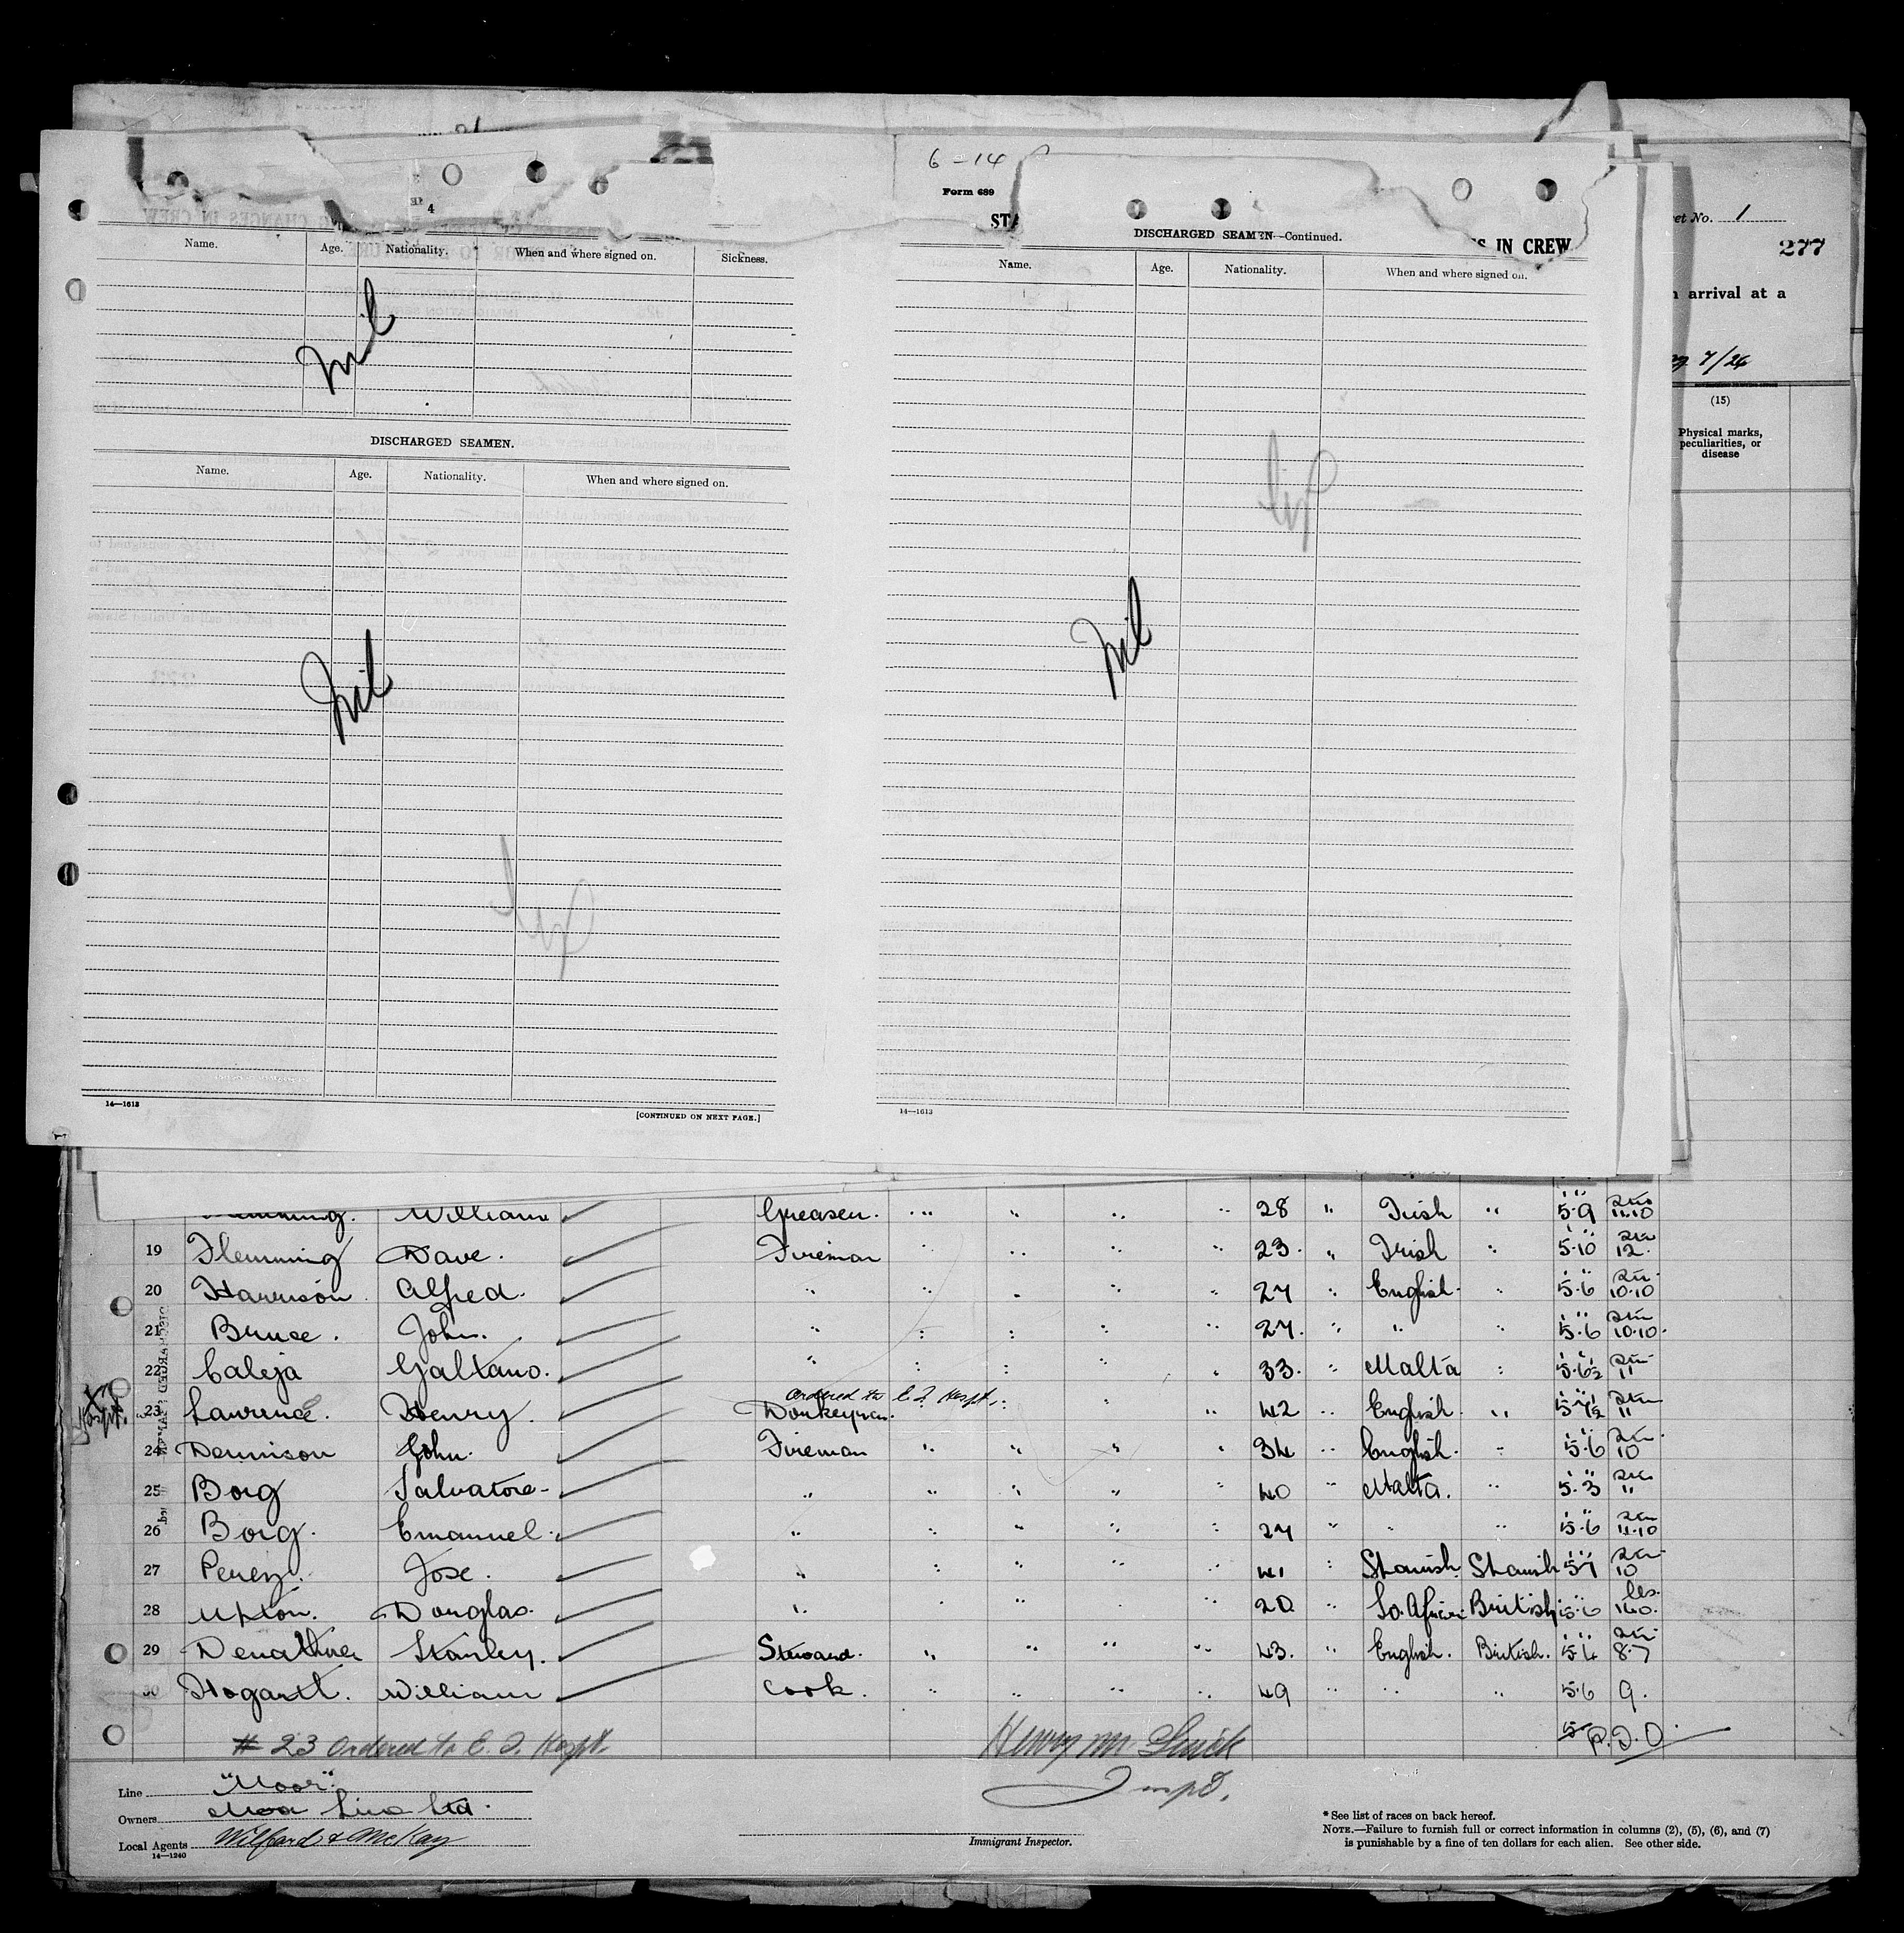 6-14
Form 689
STA
S IN CREW
et No. 1
277
n arrival at a
7/26
(15)
Physical marks,
peculiarities, or
disease
4
Name. Age. Nationality. When and where signed on. Sickness.
Nil
DISCHARGED SEAMEN.
Name. Age. Nationality. When and where signed on.
Nil
14—1613
[CONTINUED ON NEXT PAGE.]
DISCHARGED SEAMEN—Continued.
Name. Age. Nationality. When and where signed on.
Nil
14—1613
William Greaser. " " " " 28 " Irish " 5.9 11.10
19 Flemming Dave. Fireman " " " " 23. " Irish " 5.10 12.
20 Harrison Alfred. " " " " " 27 " English. " 5.6 10.10
21 Bruce. John. " " " " 27. " " " 5.6 10.10.
22 Caleja Galtano. " " " " " 33. " Malta " 5.6½ "
Ordered to E. I. Hospt.
Hospt. 23 Laurence. Henry. Donkeyman. " " " 42 " English. " 5.7½ "
24 Dennison John. Fireman " " " " 34 " English. " 5.6 10
25 Borg Salvatore " " " " 40 " Malta. " 5.3 "
26 Borg. Emanuel. " " " " " 27 " " " 5.6 11.10
27 Perez. Jose. " " " " " 41 " Spanish Spanish 5.7 10
28 Upton. Douglas. " " " " 20 " So. African British 5.6 140.
29 Stanley. Steward. " " " " 43. " English. British. 5.4 8.7
30 Hogartt. William Cook. " " " " 49 " " " 5.6 9.
# 23 Ordered to E. I. Hospt.
Henry M
Insp.
Line "Moor".
Owners Moor Line Ltd.
Local Agents Wilford & McKay
14—1240
Immigrant Inspector.
* See list of races on back hereof.
NOTE.—Failure to furnish full or correct information in columns (2), (5), (6), and (7)
is punishable by a fine of ten dollars for each alien. See other side.